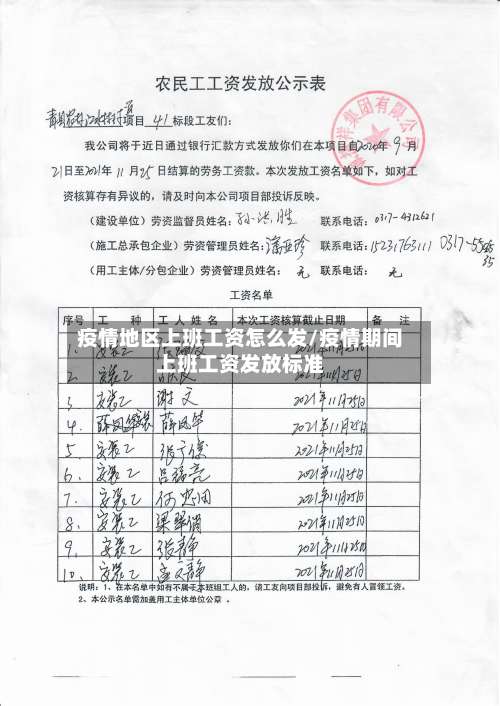 农民工工资发放公示表
集团有限公司
项目 41 标段工友们：
我公司将于近日通过银行汇款方式发放你们在本项目自2020年 9 月
21日至2021年 11 月 25 日结算的劳务工资款。本次发放工资名单如下，如对工
资核算存有异议的，请及时向本公司项目部投诉反映。
（建设单位）劳资监督员姓名：孙洪胜 联系电话：0317-4312621
（施工总承包企业）劳资管理员姓名：潘亚珍 联系电话：15231763111 0317-55
35
（用工主体/分包企业）劳资管理员姓名： 无 联系电话： 无
工资名单
序号 工 种 工人姓名 本次工资核算截止日期 备 注
疫情地区上班工资怎么发/疫情期间
上班工资发放标准
1. 安装工 2021年11月25日
2. 安装工 2021年11月25日
3 安装工 谢文 2021年11月25日
4. 薛凤华 2021年11月25日
5. 安装工 2021年11月25日
6. 安装工 吕禄亮 2021年11月25日
7. 安装工 何忠田 2021年11月25日
8. 安装工 梁翠俏 2021年11月25日
9. 安装工 张静 2021年11月25日
10. 安装工 孟文静 2021年11月25日
说明：1、在本名单中如有不属于本班组工人的，请工友向项目部投诉，避免有人冒领工资。
2、本公示名单需加盖用工主体单位公章 。